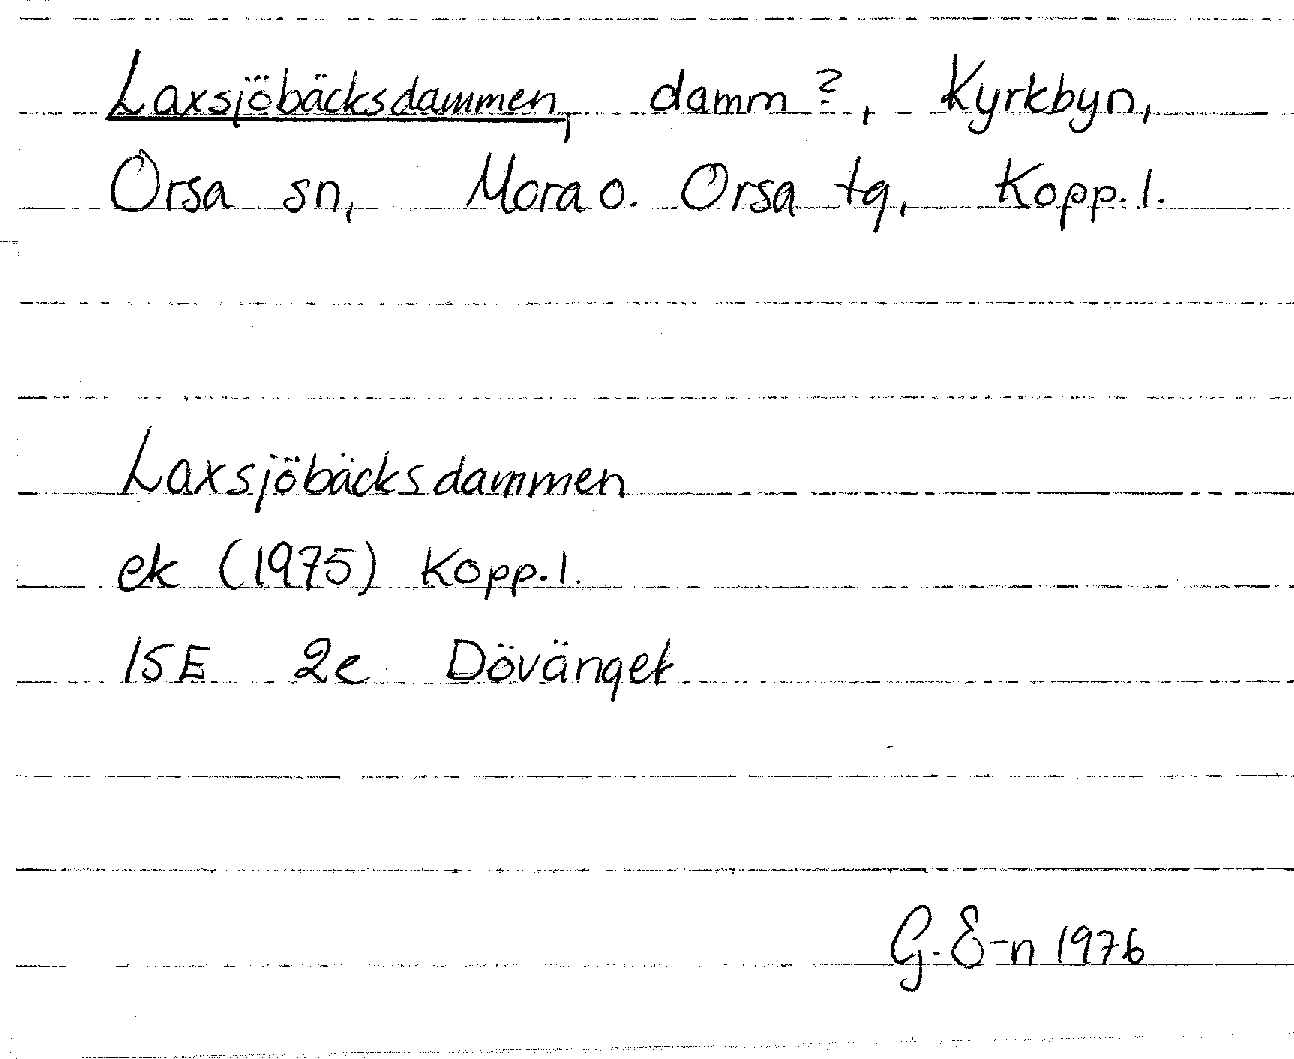 Laxsjöbäcksdammen, damm?, Kyrkbyn,
Orsa sn, Mora o. Orsa tg, Kopp. l.
Laxsjöbäcksdammen
ek (1975) Kopp. l.
15E 2e Dövänget
G. E-n 1976